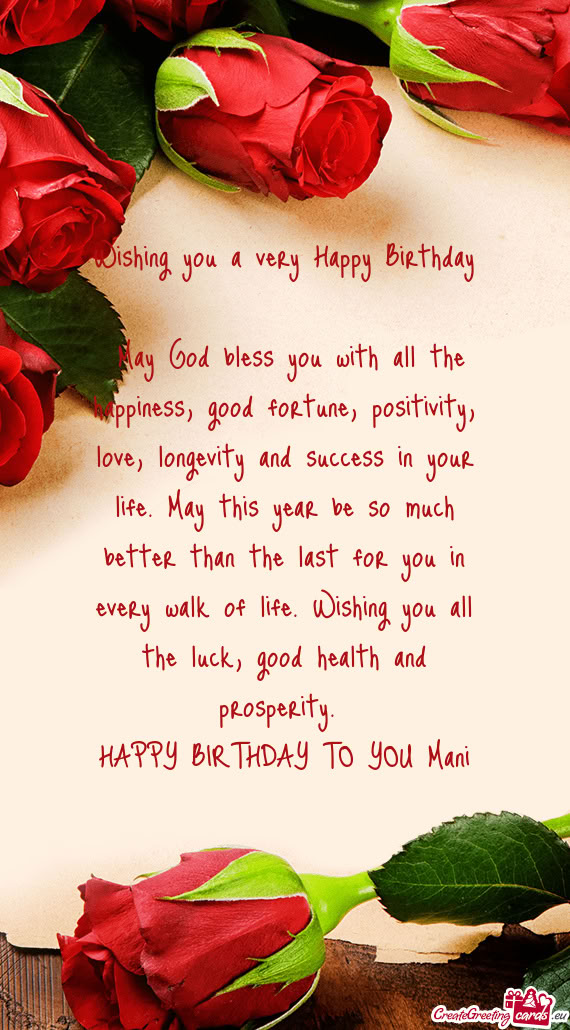 Wishing you a very Happy Birthday
May God bless you with all the
happiness, good fortune, positivity,
love, longevity and success in your
life. May this year be so much
better than the last for you in
every walk of life. Wishing you all
the luck, good health and
prosperity.
HAPPY BIRTHDAY TO YOU Mani
CreateGreeting cards .eu